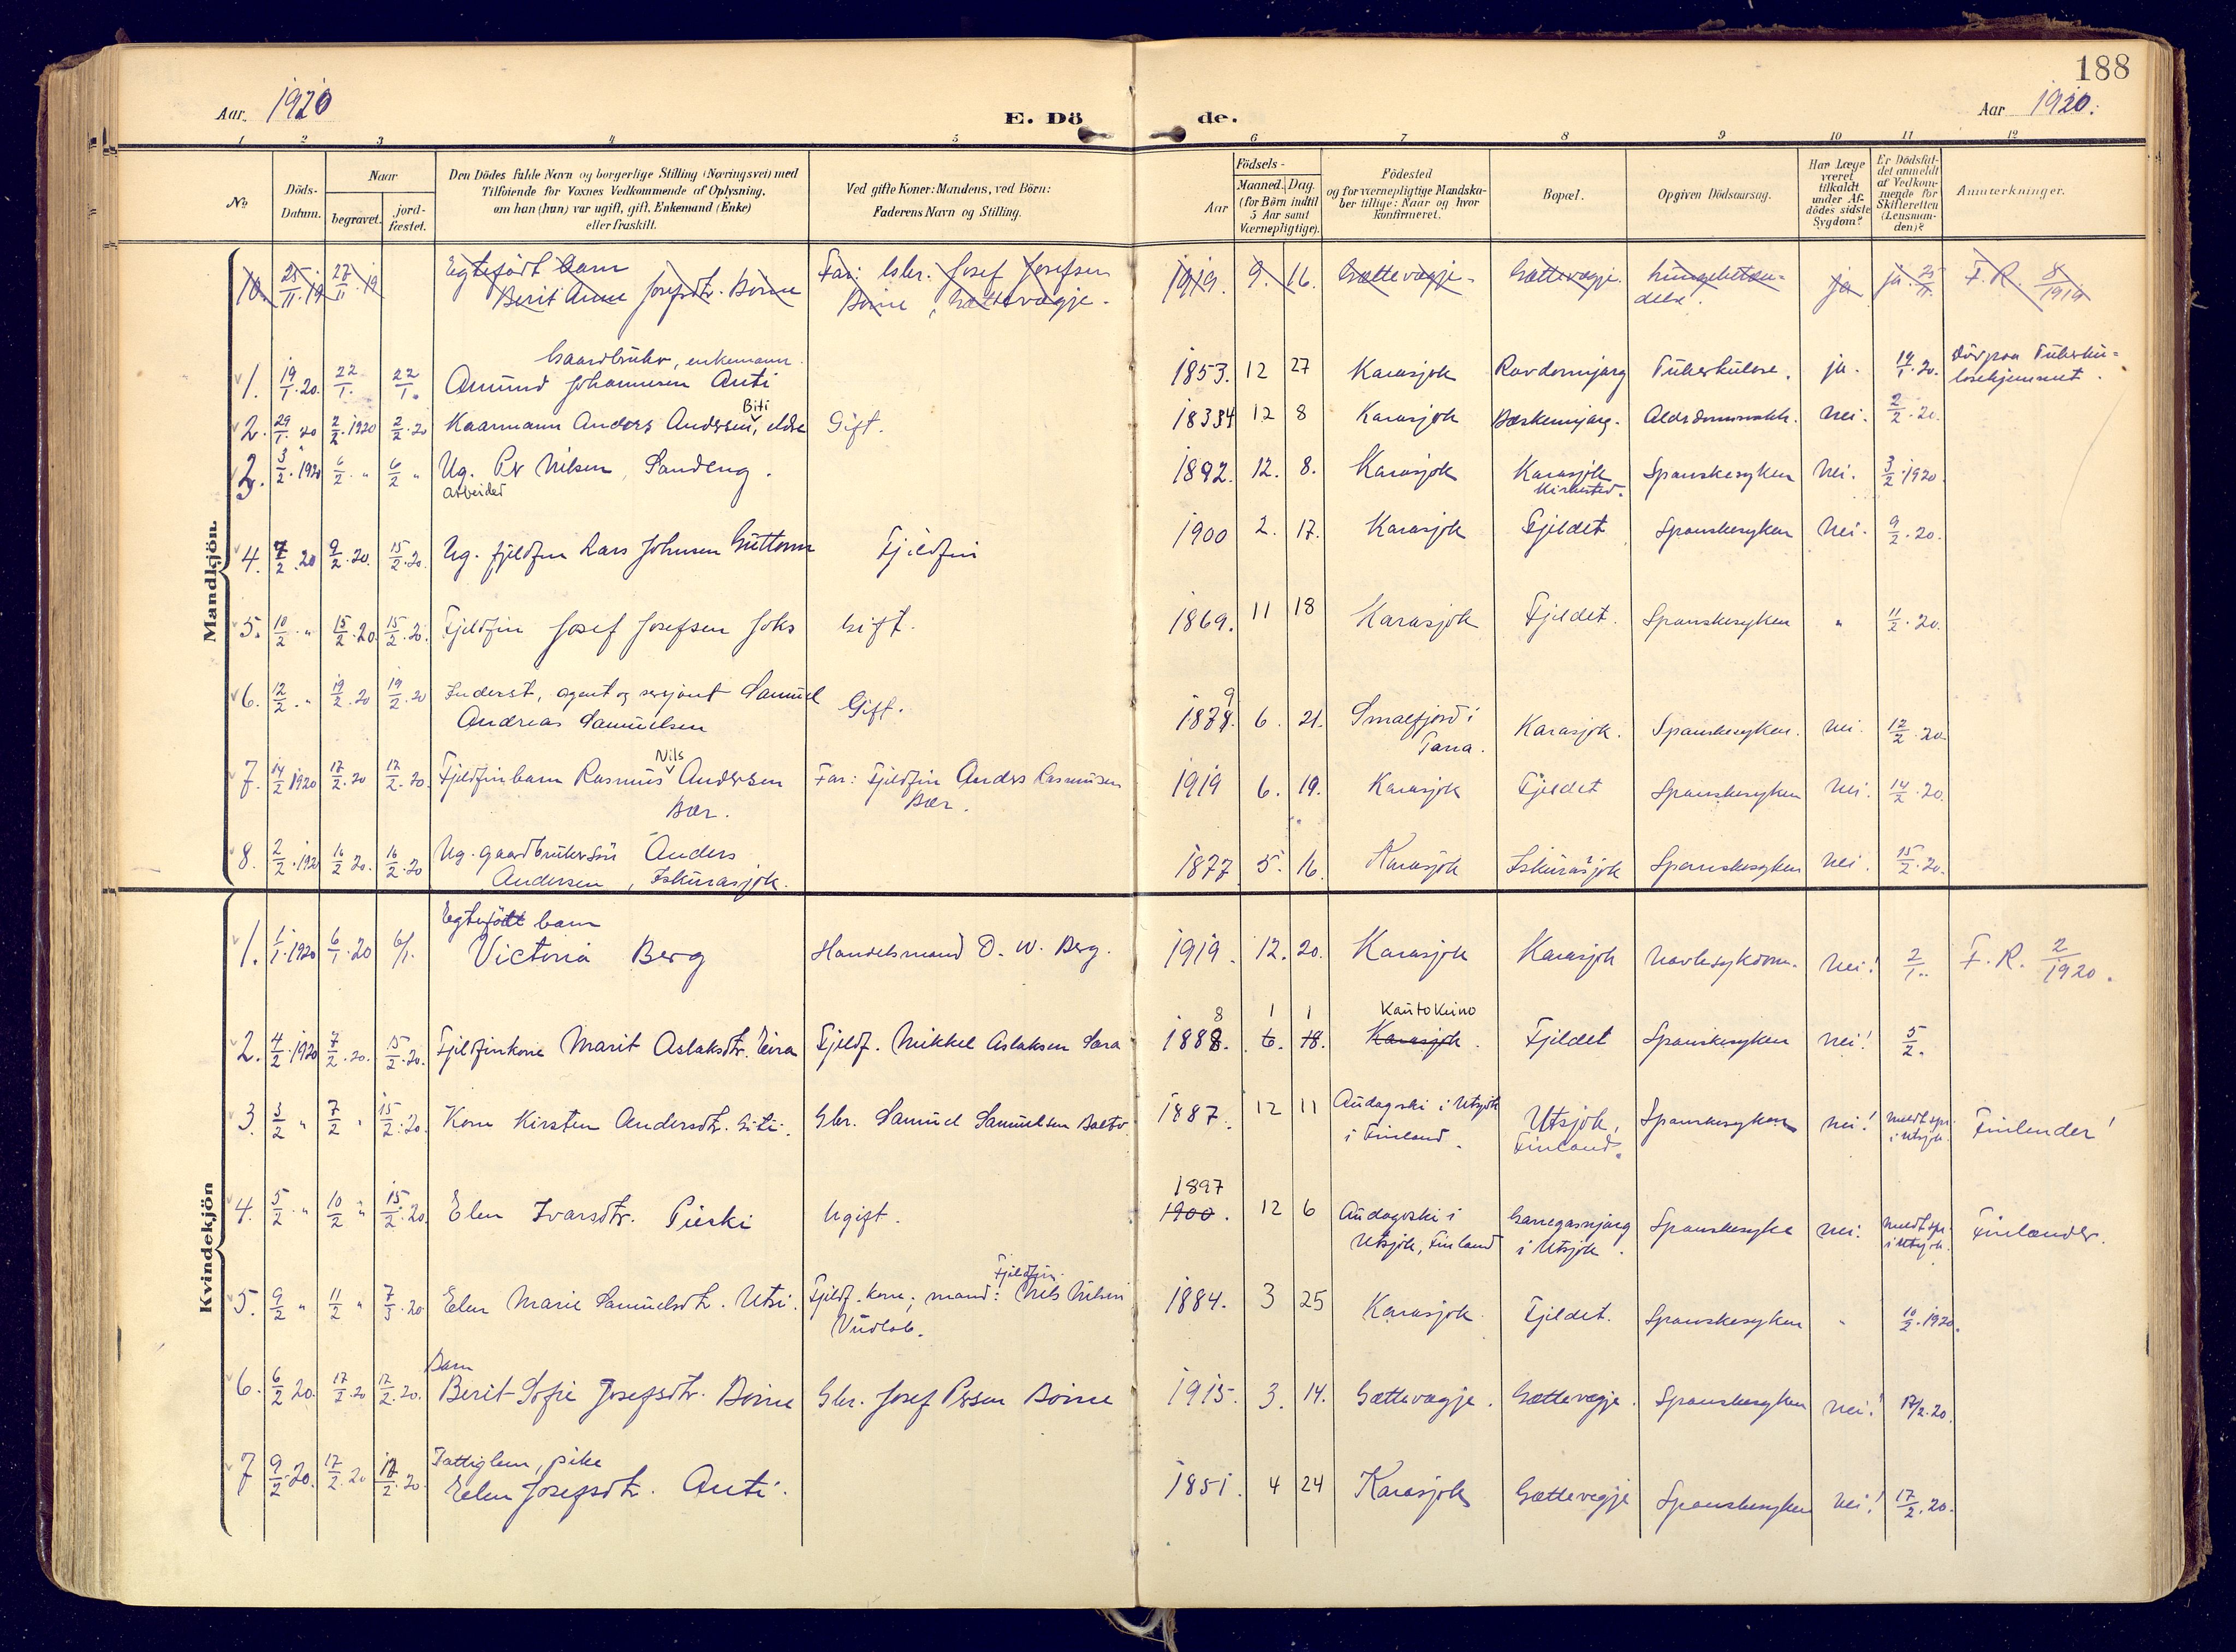 188
Aar. 1920
E. Dö de.
Aar 1920.
1 2 3 4 5 6 7 8 9 10 11 12
No
Döds-
Datum.
Naar
begravet.
jord-
fæstet.
Den Dödes fulde Navn og borgerlige Stilling (Næringsvei) med
Tilföiende for Voxnes Vedkommende af Oplysning,
om han (hun) var ugift, gift, Enkemand (Enke)
eller fraskilt.
Ved gifte Koner: Mandens, ved Börn:
Faderens Navn og Stilling.
Födsels-
Aar
Maaned. Dag.
(for Børn indtil
5 Aar samt
Værnepligtige).
Födested
og for værnepligtige Mandska-
ber tillige: Naar og hvor
konfirmeret.
Bopæl.
Opgiven Dödsaarsag.
Har Læge
været
tilkaldt
under Af-
dödes sidste
Sygdom?
Er Dödsfal-
det anmeldt
af Vedkom-
mende for
Skifteretten
(Lensman-
den)?
Anmærkninger.
Mandkjön.
10. 25/11.19 27/11.19 Egtefödt barn
Berit Anne Josefsdtr. Boine Far: Gbr. Josef Josefsen
Boine, Gættevagje. 1919. 9. 16. Gættevagje. Gættevagje. lungebeten-
delse. ja ja. 25/11. F. R. 8/1919
Gaardbruker, enkemann.
1. 19/1.20. 22/1. 22/1. Amund Johannesen Anti 1853. 12 27 Karasjok Ravdornjarg Tuberkulose. ja. 19/1.20. Död paa Tuberku-
losehjemmet.
Biti
2. 29/1.20 2/2.1920 2/2.20 Kaarmann Anders Andersen, eldre Gift. 1834 12 8 Karasjok Bæskenjarg. nei. 2/2.20.
3. 3/2.1920 6/2. " 6/2 " Ug. Per Nilsen, Sandeng.
arbeider 1892. 12. 8. Karasjok Karasjok
Kirkested. Spanskesyken Nei. 3/2.1920.
4. 7/2.20 9/2.20. 15/2.20. Ug. fjeldfin Lars Johnsen Guttorm Fjeldfin 1900 2. 17. Karasjok Fjeldet Spanskesyken Nei. 9/2.20.
5. 10/2. " 15/2.20. 15/2.20. Fjeldfin Josef Josefsen Joks Gift. 1869. 11 18 Karasjok Fjeldet. Spanskesyken " 11/2.20.
6. 12/2. " 19/2.20 19/2.20 Inderst, agent og sersjant Samuel
Andreas Samuelsen Gift. 9
1878. 6. 21. Smalfjord i
Tana. Karasjok. Spanskesyken. nei. 12/2.20
Nils
7. 14/2 1920 17/2.20 17/2.20. Fjeldfinbarn Rasmus Andersen
Bær. Far: Fjeldfin Anders Rasmusen
Bær. 1919 6. 19. Karasjok Fjeldet Spanskesyken Nei. 14/2.20.
8. 2/2.192 16/2 20. 16/2.20 Ug. gaardbrukersön Anders
Andersen, Iskurasjok. 1877 5. 16. Karasjok Iskurasjok Spanskesyken nei. 15/2.20.
Kvindekjön
1. 1/1.1920 6/1.20 6/1. Egtefödt barn
Victoria Berg Handelsmand O. W. Berg. 1919. 12. 20. Karasjok Karasjok Navlesykdom. Nei! 2/1.. F. R. 2/1920.
8 1 1 Kautokeino
2. 4/2.1920 7/2.20. 15/2.20. Fjeldfinkone Marit Aslaksdtr. Eira Fjeldf. Mikkel Aslaksen Sara 1888. 6. 18. Karasjok. Fjeldet Spanskesyken nei! 5/2.
3. 3/2 " 7/2 " 15/2.20. Kone Kirsten Andersdtr. Biti. Gbr. Samuel Samuelsen Balto 1887. 12 11 Audagoski i Utsjok
i Finland. Utsjok,
Finland. Spanskesyken nei! meldt spr.
i Utsjok. Finlender!
1897
4. 5/2. " 10/2 " 15/2.20. Elen Ivarsdtr. Pieski Ugift. 1900. 12 6 Audagoski i
Utsjok, Finland Garregasnjarg
i Utsjok. Spanskesyke nei. meldt spr.
i Utsjok. Finlænder.
Fjeldfin.
5. 9/2 " 11/2 " 7/3.20 Elen Marie Samuelsdtr. Utsi. Fjeldf. kone; mand: Nils Nilsen
Vudlab. 1884. 3 25 Karasjok. Fjeldet. Spanskesyken " 10/2.1920.
Barn
6. 6/2 20. 17/2.20 17/2.20. Berit Sofie Josefsdtr. Boine Gbr. Josef Persen Boine 1915. 3. 14. Gættevagje. Gættevagje. Spanskesyken nei! 17/2.20.
7 9/2.20. 17/2.20 17/2.20. Fattiglem, pike
Elen Josefsdtr. Anti. 1851. 4 24 Karasjok Gættevagje Spanskesyken Nei! 17/2.20.